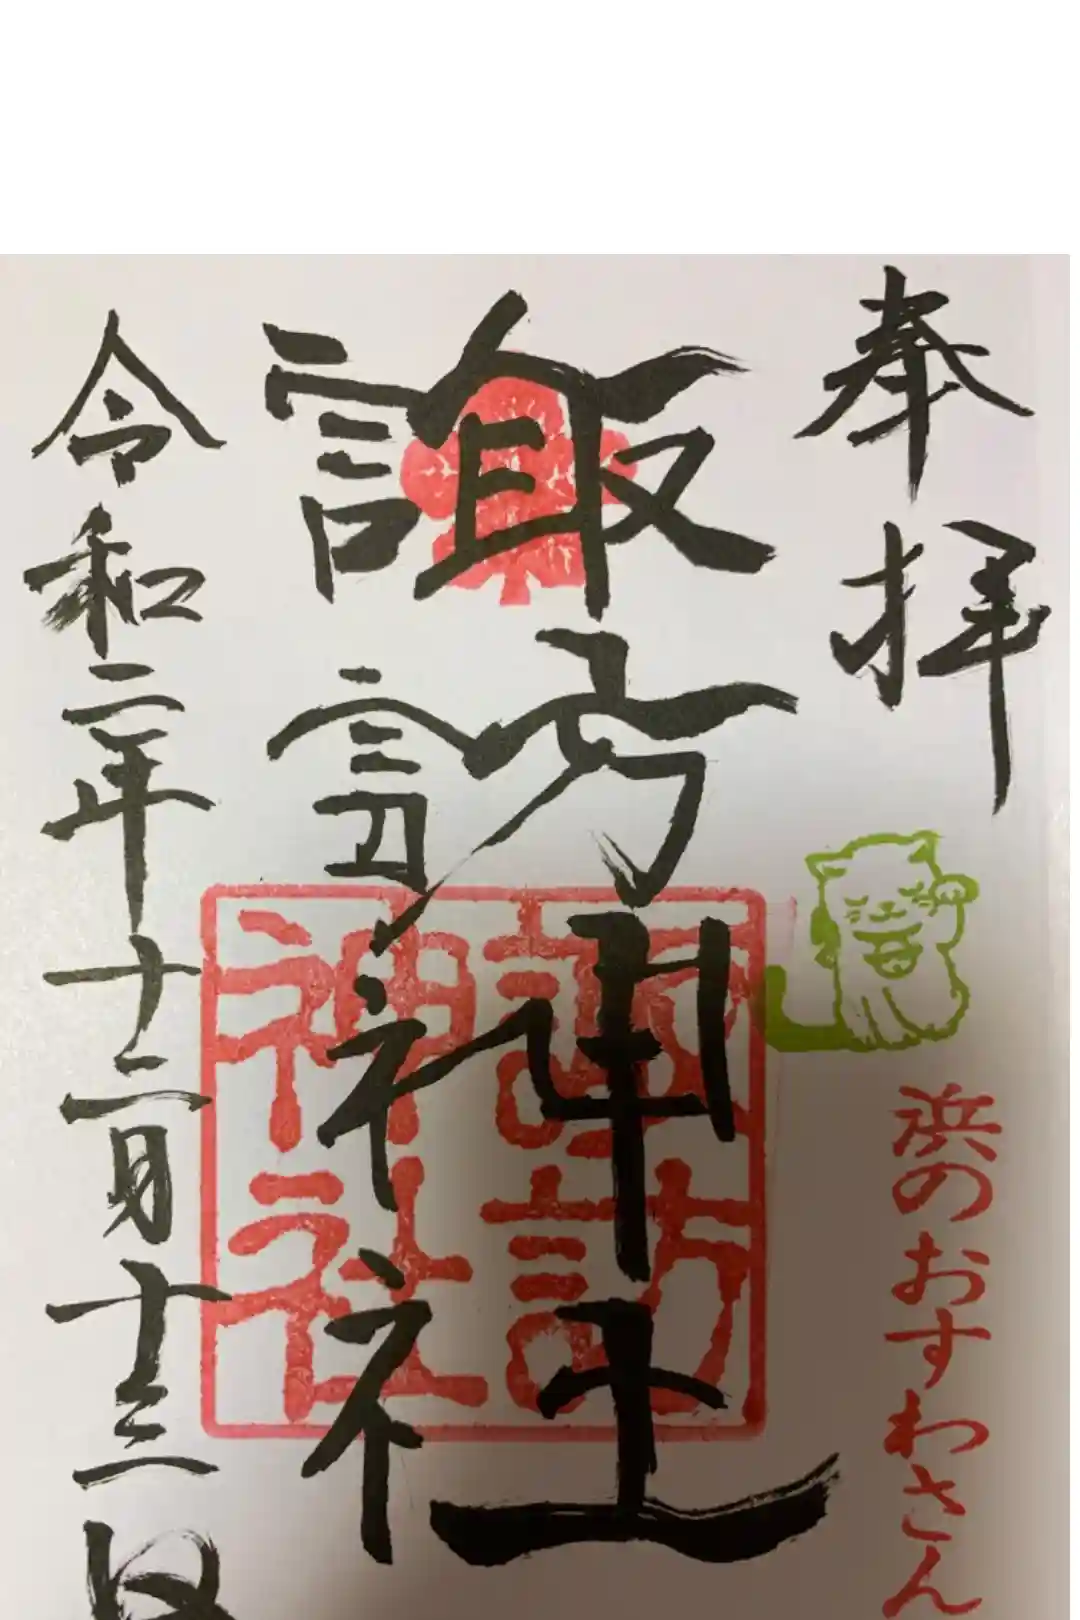 奉拝
浜のおすわさん
諏訪神社
諏訪神社
令和二年十二月十三日